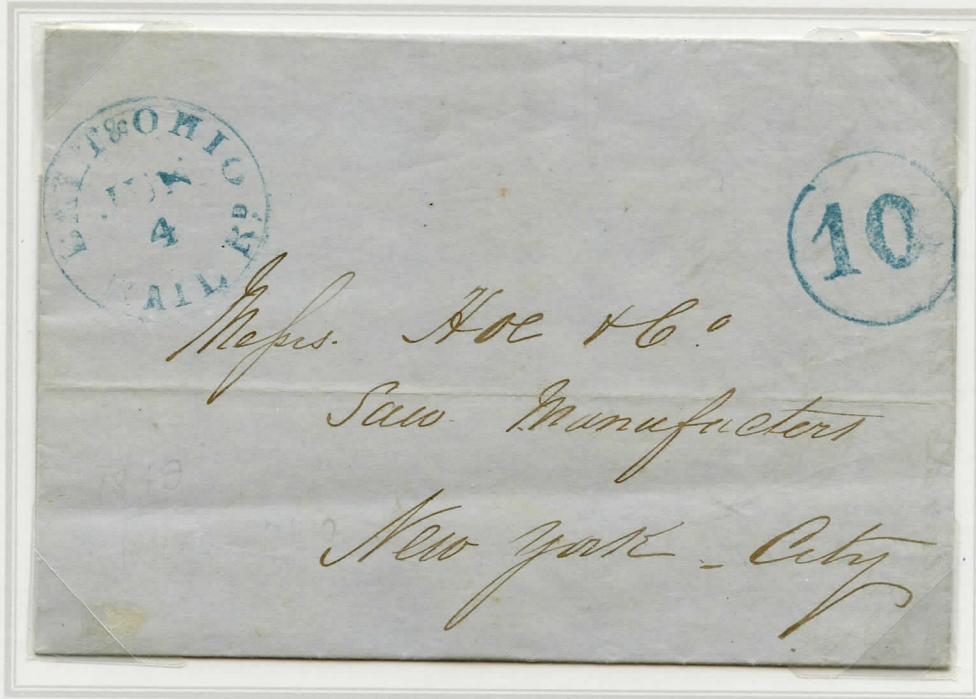 BALT & OHIO RAIL Rᴅ.
4
10
Messrs. Hoe & Cº
Saw Manufacters
New York - City